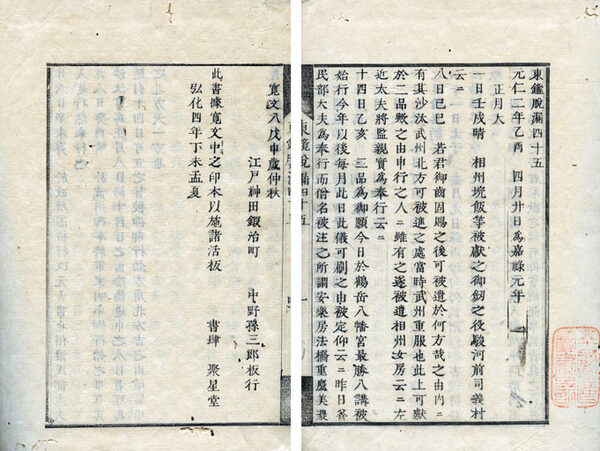 東鑑脱漏四十五
元仁二年乙酉　四月廿日為嘉祿元年
正月大
一日壬戌晴　相州垸飯等被獻之御劔之役駿河前司義村
云〻
八日己巳　若君御齒固賜之後可被遣於何方哉之由内〻
有其沙汰武州北方可被進之處當時武州重服也此上可獻
於二品歟之由申行之人〻雖有之遂被遣相州女房云〻左
近太夫將監親實為奉行云〻
十四日乙亥　二品為御願今日於鶴岳八幡宮最勝八講被
始行今年以後毎月此日此儀可刷之由被定仰云〻昨日善
民部大夫為奉行而僧名被注之所謂安樂房法橋重慶美濃
東鑑脱漏四十五
一
寛文八戊申歳仲秋
江戸神田鍛冶町　中野孫三郎板行
此書據寛文中之印本以菴諸活板
弘化四年丁未孟夏　書肆　聚星堂